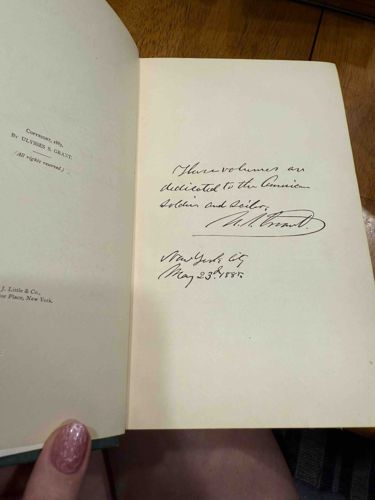 Copyright, 1885,
By ULYSSES S. GRANT.
(All rights reserved.)
J. Little & Co.,
Place, New York.
These volumes are
dedicated to the American
soldier and sailor.
U. S. Grant
New York City
May 23d. 1885.